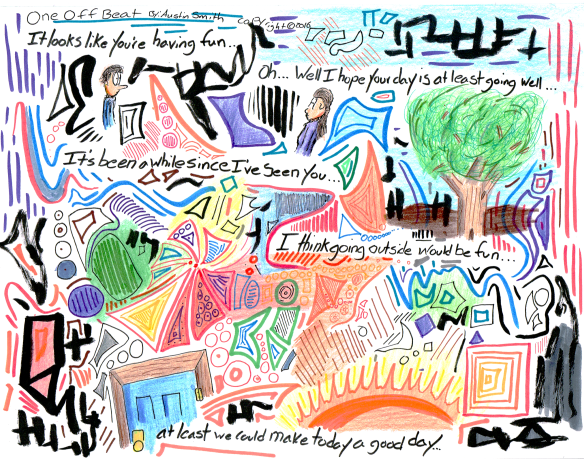 One Off Beat By: Austin Smith Copyright © 2016
It looks like you're having fun...
Oh... Well I hope your day is at least going well...
It's been a while since I've seen you...
I think going outside would be fun...
at least we could make today a good day...